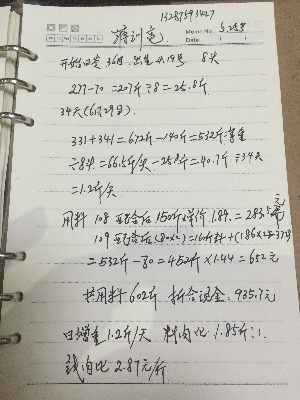 13287593427
Memo No.
Date
开始日龄 36日. 出生 4.19号. 8头
277-70=207斤÷8=25.8斤.
34天(6月29日).
331+341=672斤-140斤=532斤
÷8头=66.5斤/头-25.8斤=40.7斤÷34天
=1.2斤/天
用料 108 配合后 150斤 单价 1.89=283.5元
109 配合后(80×2)=160斤料+(186×2=372斤)
=532斤-80=452斤×1.44=652元
共用料 602斤 折合现金: 935.7元
日增重 1.2斤/天 料肉比 1.85斤:1.
钱肉比 2.87元/斤